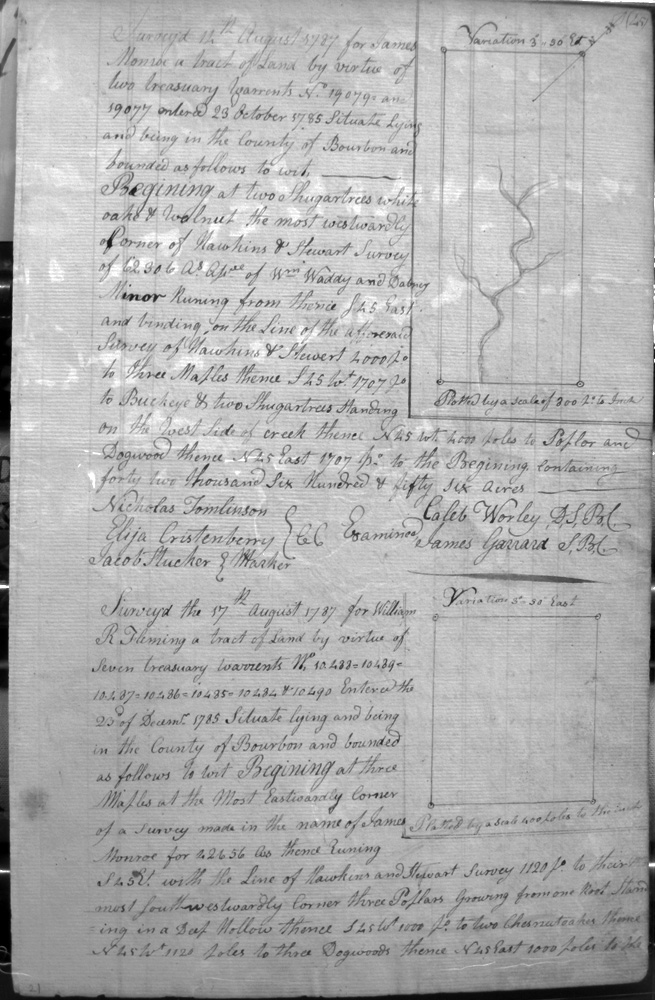 (25)
Survey'd 12th August 1787 for James
Monroe a tract of Land by virtue of
two treasury Warrents No. 19079= and
19077 entered 23 October 1785 Situate Lying
and being in the County of Bourbon and
bounded as follows to wit,
Begining at two Shugartrees white
oake & Walnut the most westwardly
Corner of Hawkins & Stewart Survey
of 62.306 As Apnee of Wm Waddy and Dabney
Minor Runing from thence S 45 East
and binding on the Line of the afforeraid
Survey of Hawkins & Stewert 4000 po
to Three Maples thence S 45 Wt 1707 po
to Buckeye & two Shugartrees Standing
on the West Side of creek thence N 45 Wt. 4000 poles to Poplor and
Dogwood thence N 45 East 1707 po to the Begining containing
forty two thousand Six Hundred & fifty Six acres
Nicholas Tomlinson
Elija Cristenberry } CC Examined
Jacob Stucker } Marker
Caleb Worley D.S.B.C
James Garrard S.B.C
Variation 5-30 Et
Plotted by a Scale of 800 po to Inch
Survey'd the 17th August 1787 for William
R Fleming a tract of Land by virtue of
Seven treasury warrents No, 10.488=10489=
10.487=10486=10485=10484 & 10490 Entered the
23d of Decemr. 1785 Situate lying and being
in the County of Bourbon and bounded
as follows to wit Begining at three
Maples at the Most Eastwardly Corner
of a Survey made in the name of James
Monroe for 42656 As thence Runing
S 45 Et. with the Line of Hawkins and Stewart Survey 1120 po to their
most Southwestwardly Corner three Poplars Growing from one Root Stand
=ing in a Deep Hollow thence S 45 Wt 1000 po to two Chesnutoakes thence
N 45 Wt 1120 poles to three Dogwoods thence N 45 East 1000 poles to the
Variation 5-30 East
Platted by a Scale 400 poles to the Inch
21